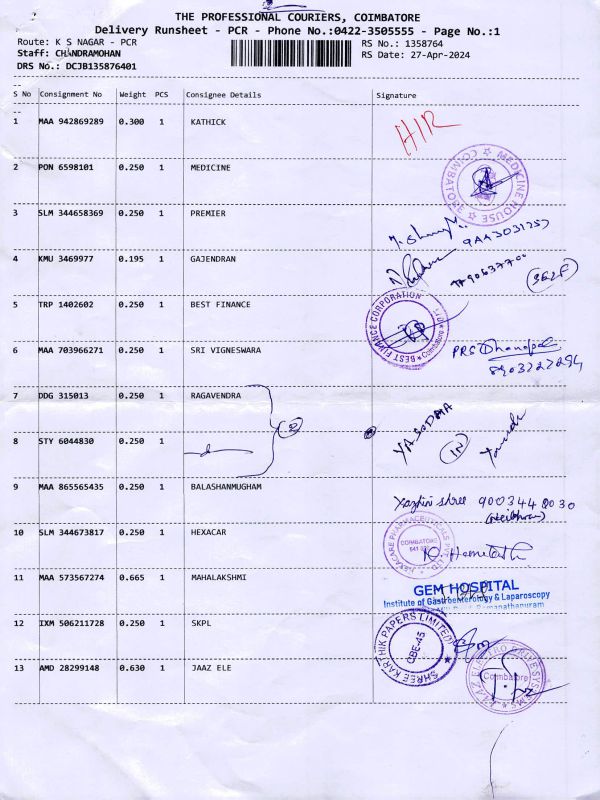 THE PROFESSIONAL COURIERS, COIMBATORE
Delivery Runsheet - PCR - Phone No.:0422-3505555 - Page No.:1
Route: K S NAGAR - PCR
RS No.: 1358764
Staff: CHANDRAMOHAN
RS Date: 27-Apr-2024
DRS No.: DCJB135876401
S No Consignment No Weight PCS Consignee Details Signature
1 MAA 942869289 0.300 1 KATHICK
HIR
2 PON 6598101 0.250 1 MEDICINE
MEDICINE HOUSE COIMBATORE
3 SLM 344658369 0.250 1 PREMIER
4 KMU 3469977 0.195 1 GAJENDRAN
362F
5 TRP 1402602 0.250 1 BEST FINANCE
BEST FINANCE CORPORATION Coimbatore
6 MAA 703966271 0.250 1 SRI VIGNESWARA
PRS Dhanapal
8903727294
7 DDG 315013 0.250 1 RAGAVENDRA
2
YASODHA
IN
8 STY 6044830 0.250 1
9 MAA 865565435 0.250 1 BALASHANMUGHAM
Yazhini shree
10 SLM 344673817 0.250 1 HEXACAR
HEXACARE PHARMACEUTICALS PVT. LTD.
COIMBATORE
11 MAA 573567274 0.665 1 MAHALAKSHMI
GEM HOSPITAL
Institute of Gastroenterology & Laparoscopy
Ramanathapuram
12 IXM 506211728 0.250 1 SKPL
SHREE KARTHIK PAPERS LIMITED
CBE-45
13 AMD 28299148 0.630 1 JAAZ ELE
Coimbatore